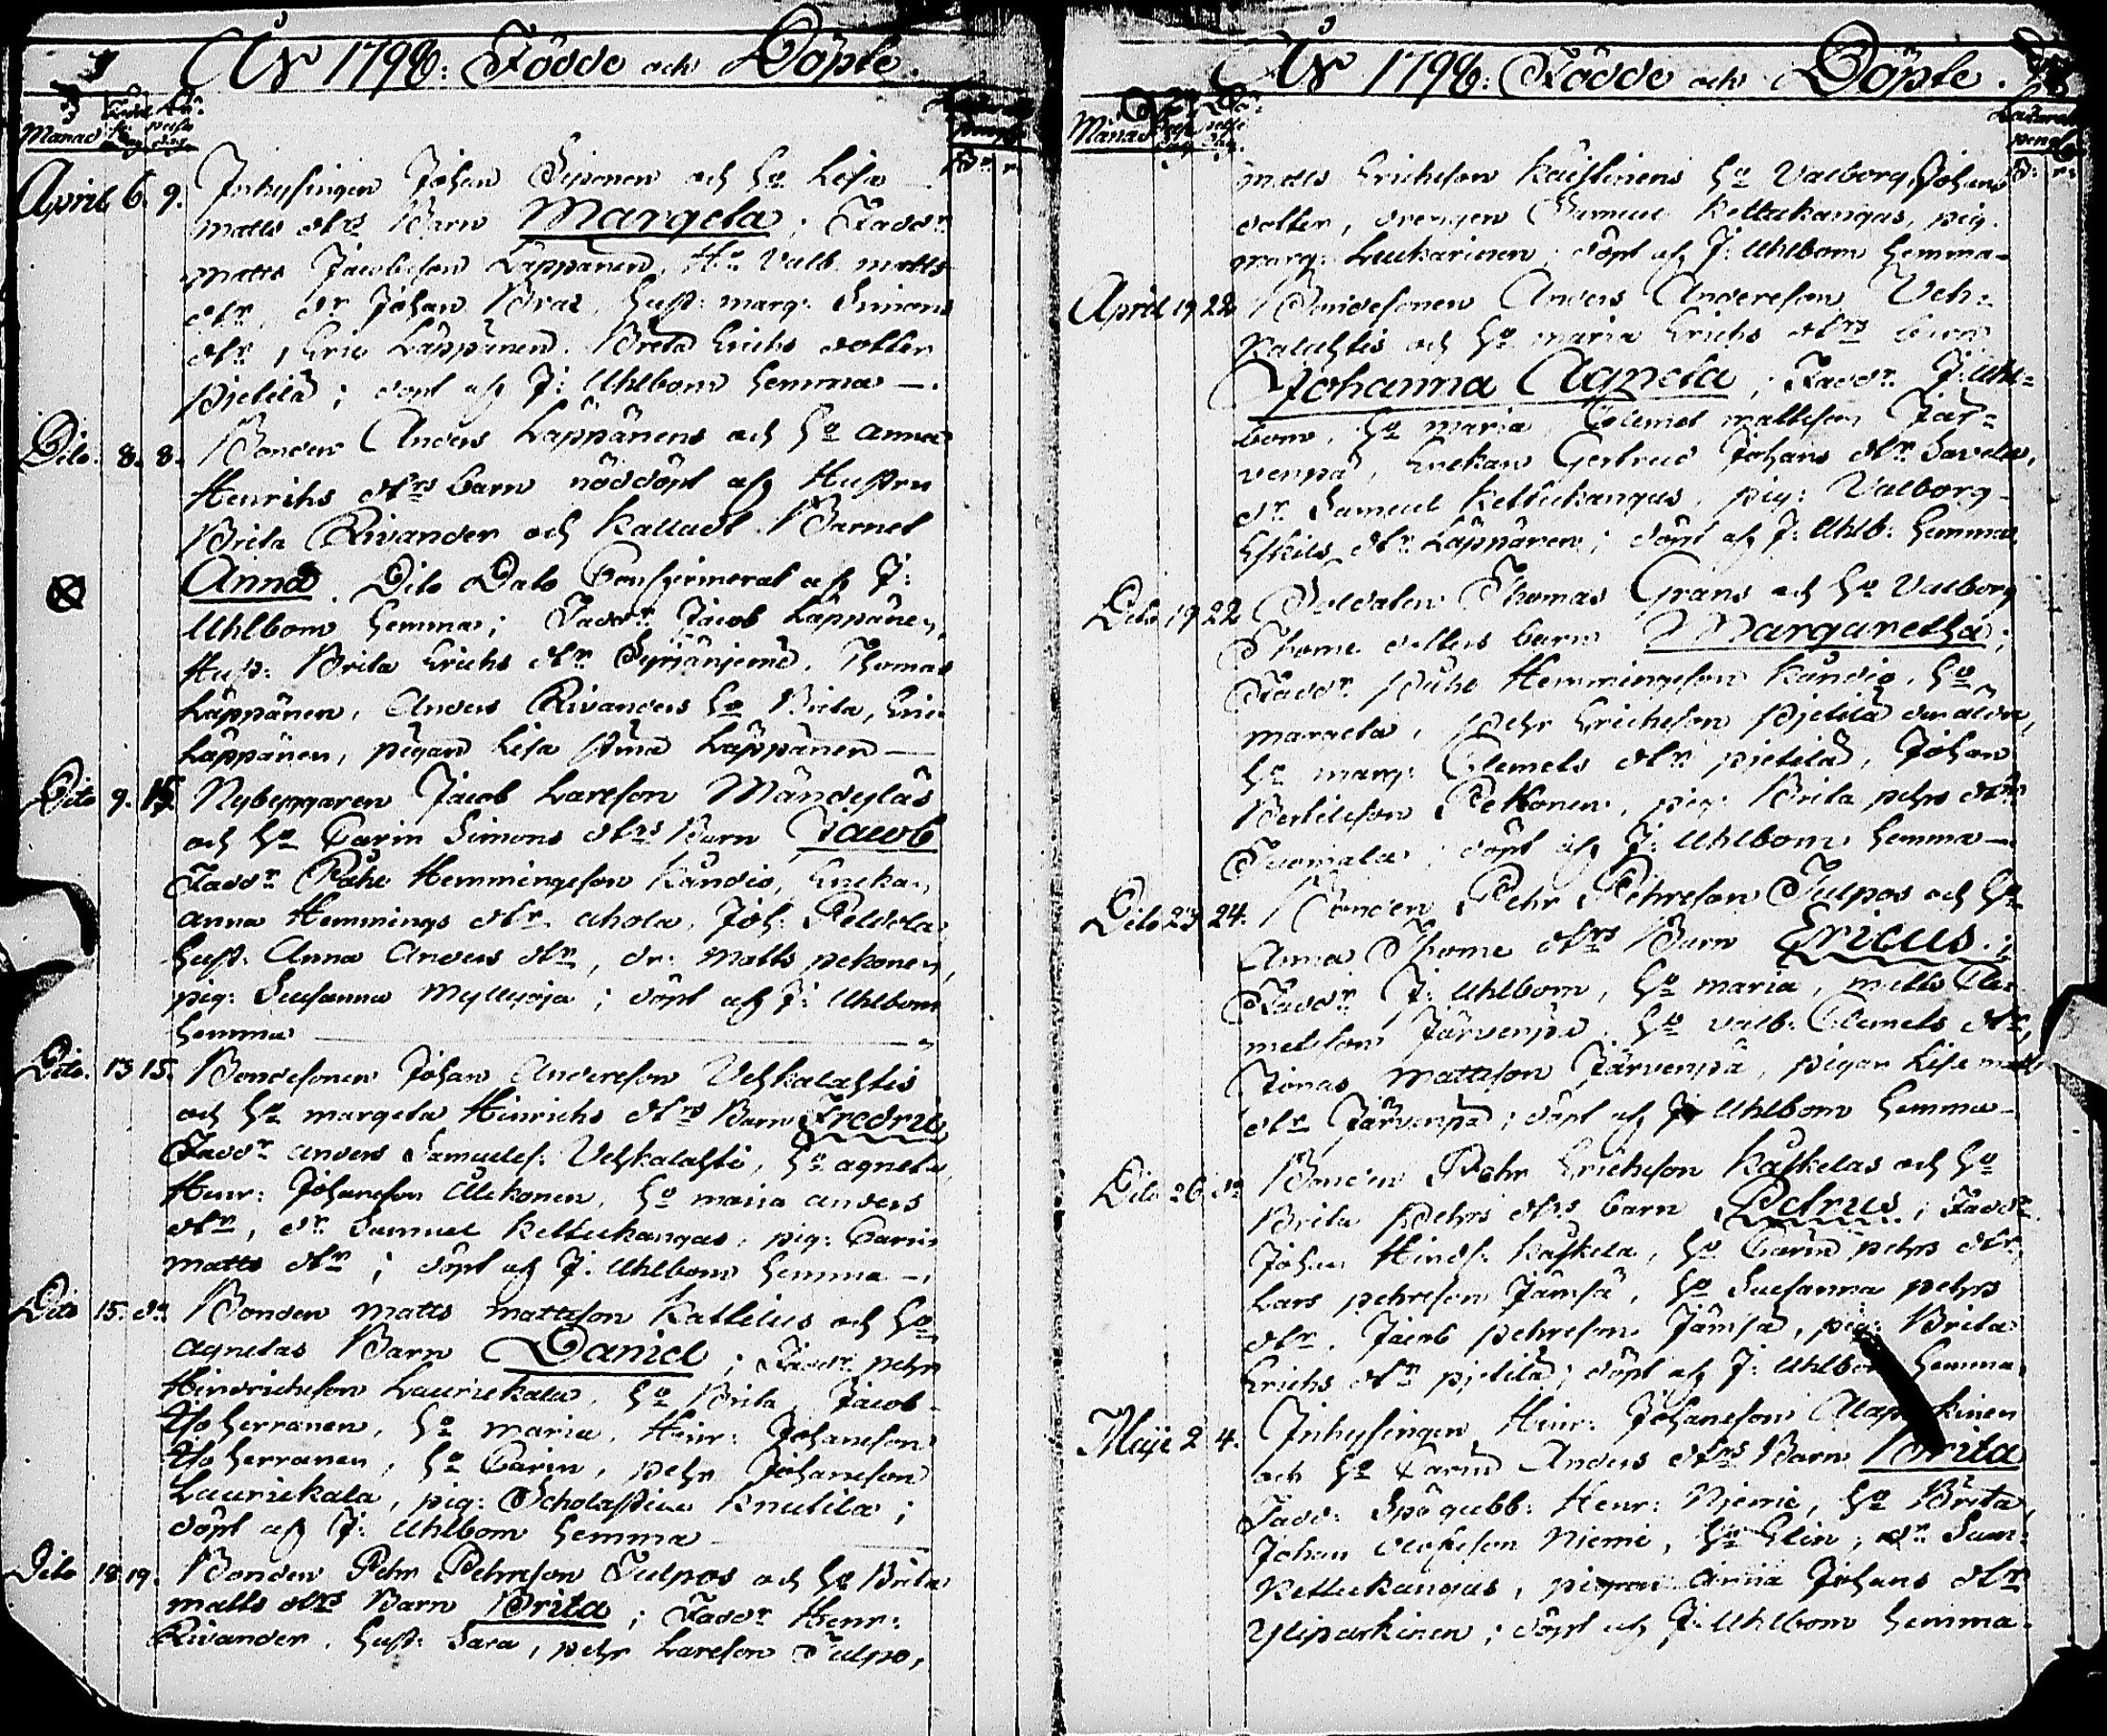 År 1798: Födde och Döpte.
Månad
April 6. 9. Inhysingen Johan Siponen och Ho Lisa
Matts dtrs Barn Margeta; Faddr
Matts Jacobsson Läppänen, Ho Valb. Matts
dtr, dr Johan Brax, Hust: Marg: Simons
dtr, Eric Läppänen, Breta Erichs dotter
Pjetilä; döpt af J: Uhlbom hemma —.
Dito. 8. 8. Bonden Anders Läppänens och Ho Anna
Henrichs dtrs barn nöddöpt af Hustru
Brita Rivander och Kalladt Barnet
Anna. Dito Dato Confirmerat af J:
Uhlbom hemma; Faddr Jacob Läppänen,
Hust: Brita Erichs dtr Syrjänjemä, Thomas
Läppänen, Anders Rivanders Ho Brita, Eric
Läppänen, pigan Lisa Stina Läppänen —
Dito 9. 15. Nybyggaren Jacob Larsson Mändyläs
och Ho Carin Simons dtrs Barn Jacob
Faddr Påhl Hemmingsson Kandio, Enckan
Anna Hemmings dtr Ahola, Joh: Peldola
Hust: Anna Anders dtr, dr: Matts Pekonen,
pig: Susanna Myllyoja; döpt af J: Uhlbom
hemma
Dito. 13 15. Bondesonen Johan Andersson Vehkalahtis
och Ho Margeta Hinrichs dtrs Barn Fredric
Faddr Anders Samuels: Vehkalahti, Ho Agneta
Henr: Johansson Ulckonen, Ho Maria Anders
dtr, dr Samuel Kettukangas, pig: Carin
Matts dtr; döpt af J: Uhlbom hemma —.
Dito 15. do. Bonden Matts Mattsson Kattilus och Ho
Agnetas Barn Daniel; Faddr pehr
Hindrichsson Lauriekala, Ho Brita, Jacob
Isoherranen, Ho Maria, Heinr: Johansson
Isoherranen, Ho Carin, pehr Johansson
Lauriekala, pig: Scholastica Knutila;
döpt af J: Uhlbom hemma
Dito 18 19. Bonden Pehr Pehrsson Tulpos och Ho Brita
Matts dtrs Barn Brita; Faddr Henr:
Rivander, Hust: Sara, pehr Larsson Tulpo,
År 1798: Födde och Döpte.
Månad
Matts Erichsson Kaistinens Ho Valborg Johans
dotter, drengen Samuel Kettukangas, pig:
Marg: Luukarinen; döpt af J: Uhlbom hemma —
April 19 22 Bondesonen Anders Andersson Veh-
kalahtis och Ho Maria Erichs dtrs barn
Johanna Agneta; Faddr J: Uhl-
bom, Ho Maria, Clemet Mattsson Jär-
venpä, Enckan Gertrud Johans dtr Savela,
dr Samuel Kettukangas, pig: Valborg
Eskils dtr Läppänen; döpt af J: Uhlb: hemma
Dito 19 22 Soldaten Thomas Grans och Ho Valborg
Thome dotters barn Margaretha;
Faddr Påhl Hemmingsson Kandio, Ho
Margeta, Pehr Erichsson Pjetilä den äldre,
Ho Marg: Clemets dtr Pjetilä, Johan
Bertilsson Pekonen, pig: Brita pehrs dtr
Tuomala; döpt af J: Uhlbom hemma —
Dito 23 24. Bonden Pehr Pehrsson Tulpos och Ho
Anna Thome dtrs Barn Ericus.;
Faddr J: Uhlbom, Ho Maria, Matts Cle-
metsson Järvenpä, Ho Valb: Clemets dtr,
Jonas Mattsson Järvenpä, pigan Lisa Matts
dtr Järvenpä; döpt af J: Uhlbom hemma —
Dito 26. do Bonden Pehr Erichsson Kaskelas och Ho
Brita Pehrs dtrs barn Petrus; Faddr
Johan Hinds: Kaskela, Ho Carin pehrs dtr,
Lars pehrsson Jämsä, Ho Susanna pehrs
dtr, Jacob pehrsson Jämsä, pig: Brita
Erichs dtr Pjetilä; döpt af J: Uhlbom hemma
Maji 2 4. Inhysingen Heinr: Johansson kinen
och Ho Carin Anders dtrs Barn Brita
Fadd: Spögubb: Henr: Niemi, Ho Brita,
Johan Olofsson Niemi, Ho Elin, dr Sam:
Kettukangas, pigan Anna Johans dtr
Yliparkinen; döpt af J: Uhlbom hemma.